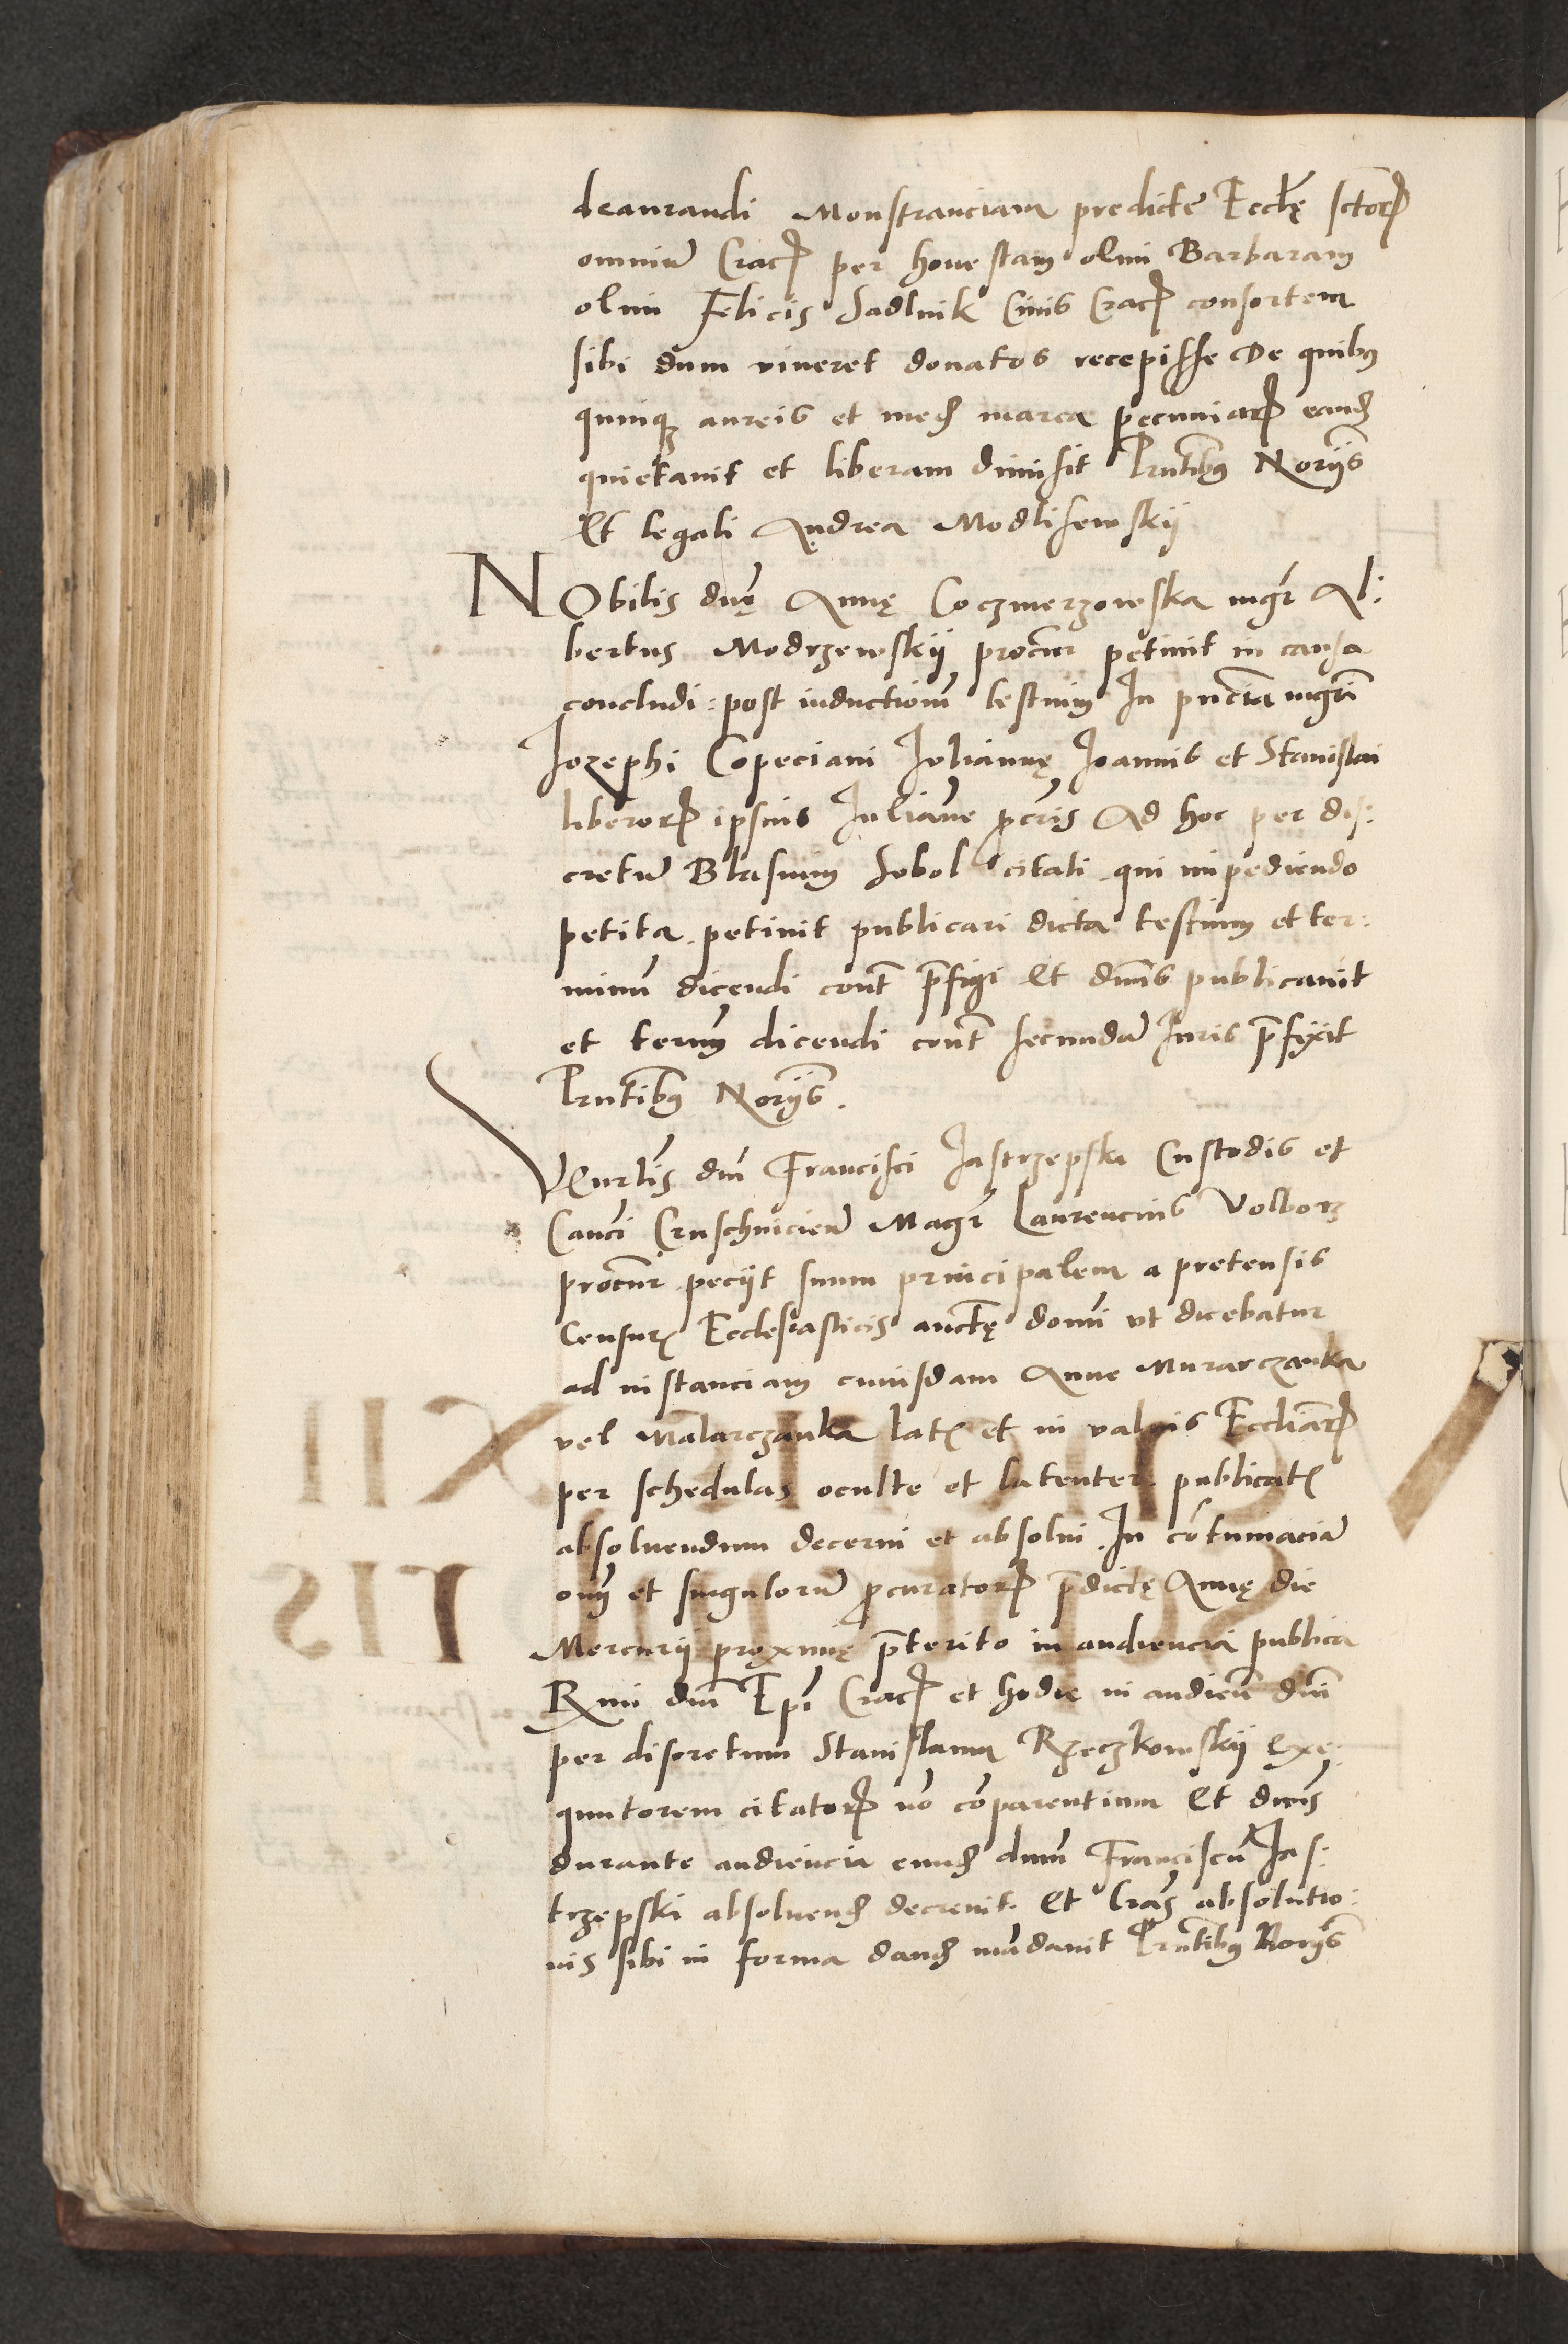 deaurandi Monstranciam predicte Eccłę sctorꝝ
omniū Cracꝝ per honestam olim Barbaram
olim Felicis Sadlnik Civis Cracꝝ consortem
sibi dum viveret donatos recepisse De quibꝰ
quinqꝫ aureis et medꝫ marca pecuniarꝝ eandꝫ
quietavit et liberam dimisit Prntibꝰ Noriis
Et legali Andrea Modlisewskij
NObilis dnę Annę Coczmerzowska mgr̄ Al:
bertus Modrzewskij procur̄ petivit in causa
concludi: post inductionem testium In pn̄cia mgr̄i
Jozephi Copeciani Juliannę Joannis et Stanislai
liberorꝝ ipsius Juliane ꝓcris Ad hoc per dis:
cretū Blasium Sobol citati qui impediendo
petita petivit publicari dicta testium et ter:
minū dicendi cont̄ p̄figi Et dn̄us publicavit
et termn̄ dicendi cont̄ secundā Juris p̄fixit
Prntibꝰ Noriis.
VEnrlis dn̄i Francisci Jastrzepski Custodis et
Canci Cruschwicien̄ Magr̄ Laurencius Volborz
procur̄ peciit suum principalem a pretensis
Censurꝭ Ecclesiasticis auctę domi vt dicebatur
ad instanciam cuiusdam Anne Murarczanka
vel Malarczanka latꝭ et in valvis Eccliarꝝ
per schedulas oculte et latenter publicatꝭ
absoluendum decerni et absolui. In cōtumaciā
om̄ et singulorū ꝓcuratorꝝ p̄dictę Annę die
Mercurij proximę p̄terito in audiencia publica
Rmi dn̄i Epī Cracꝝ et hodie in audien̄ dn̄i
per discretum Stanislaum Rzeczkowskij exe:
quutorem citatorꝝ nō cōparentium Et dn̄us
durante audiencia eundꝫ dnum Franciscū Jas:
trzepski absoluendꝫ decrevit. Et Lras absolutio:
nis sibi in forma dandꝫ mādavit Prntibꝰ Noriis